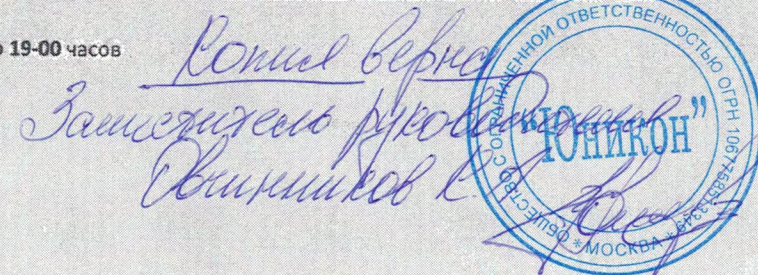 о 19-00 часов
Копия верна
Заместитель руководителя
Овчинников К.
ОБЩЕСТВО С ОГРАНИЧЕННОЙ ОТВЕТСТВЕННОСТЬЮ ОГРН
"Юникон"
* МОСКВА *